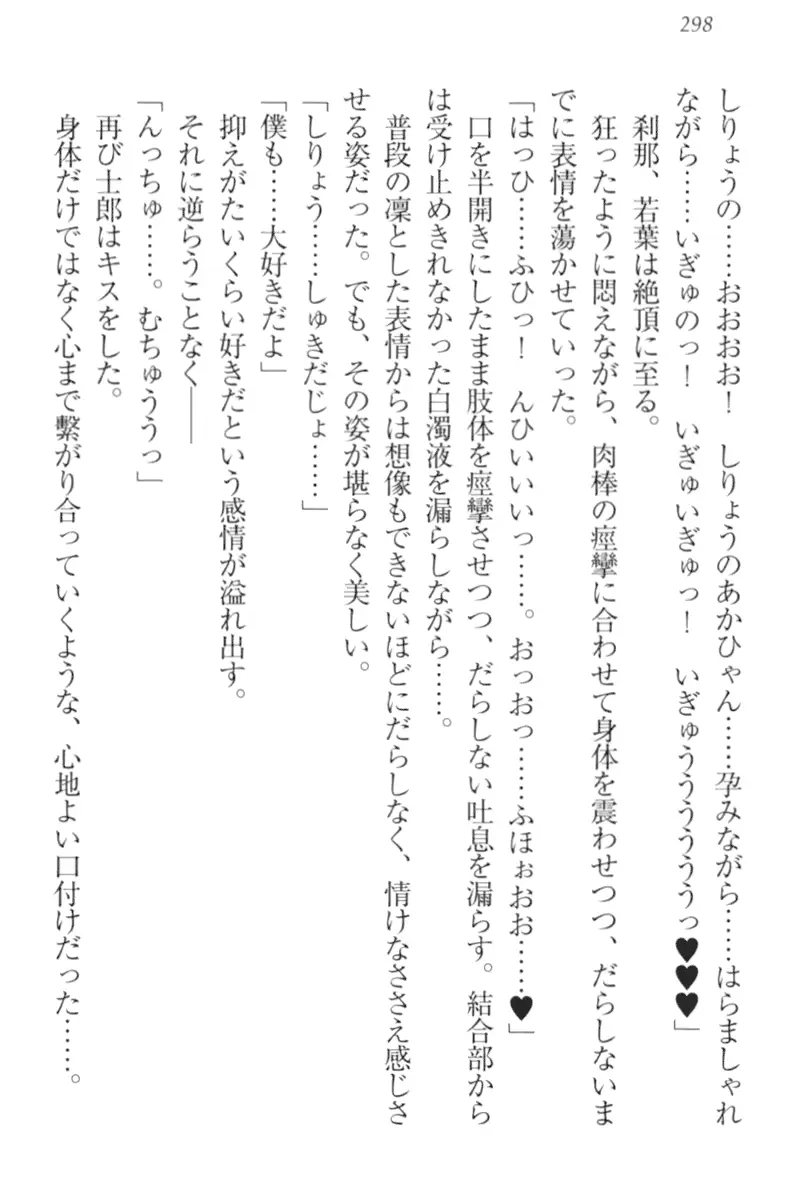 298
しりょうの……おおおお！　しりょうのあかひゃん……孕みながら……はらましゃれ
ながら……いぎゅのっ！　いぎゅいぎゅっ！　いぎゅうううううっ♥♥♥」
刹那、若葉は絶頂に至る。
狂ったように悶えながら、肉棒の痙攣に合わせて身体を震わせつつ、だらしないま
でに表情を蕩かせていった。
「はっひ……ふひっ！　んひいいいっ……。おっおっ……ふほぉおお……♥」
口を半開きにしたまま肢体を痙攣させつつ、だらしない吐息を漏らす。結合部から
は受け止めきれなかった白濁液を漏らしながら……。
普段の凛とした表情からは想像もできないほどにだらしなく、情けなささえ感じさ
せる姿だった。でも、その姿が堪らなく美しい。
「しりょう……しゅきだじょ……」
「僕も……大好きだよ」
抑えがたいくらい好きだという感情が溢れ出す。
それに逆らうことなく――
「んっちゅ……。むちゅううっ」
再び士郎はキスをした。
身体だけではなく心まで繋がり合っていくような、心地よい口付けだった……。